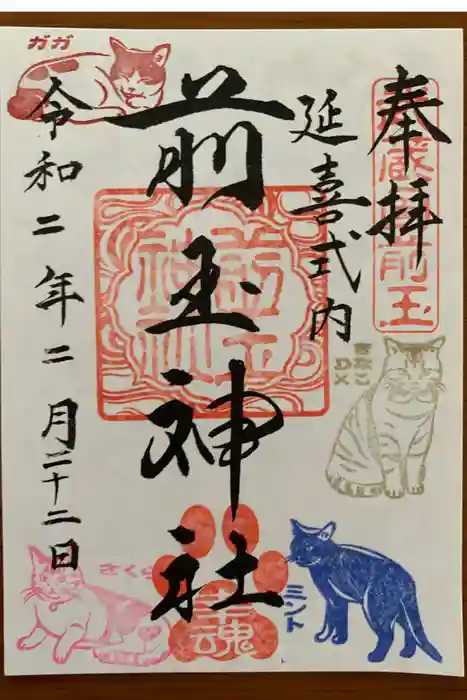 奉拝
延喜式内
前玉神社
令和二年二月二十二日
ガガ
きなこ
DX
さくら
ミント
前玉
神社
幸魂